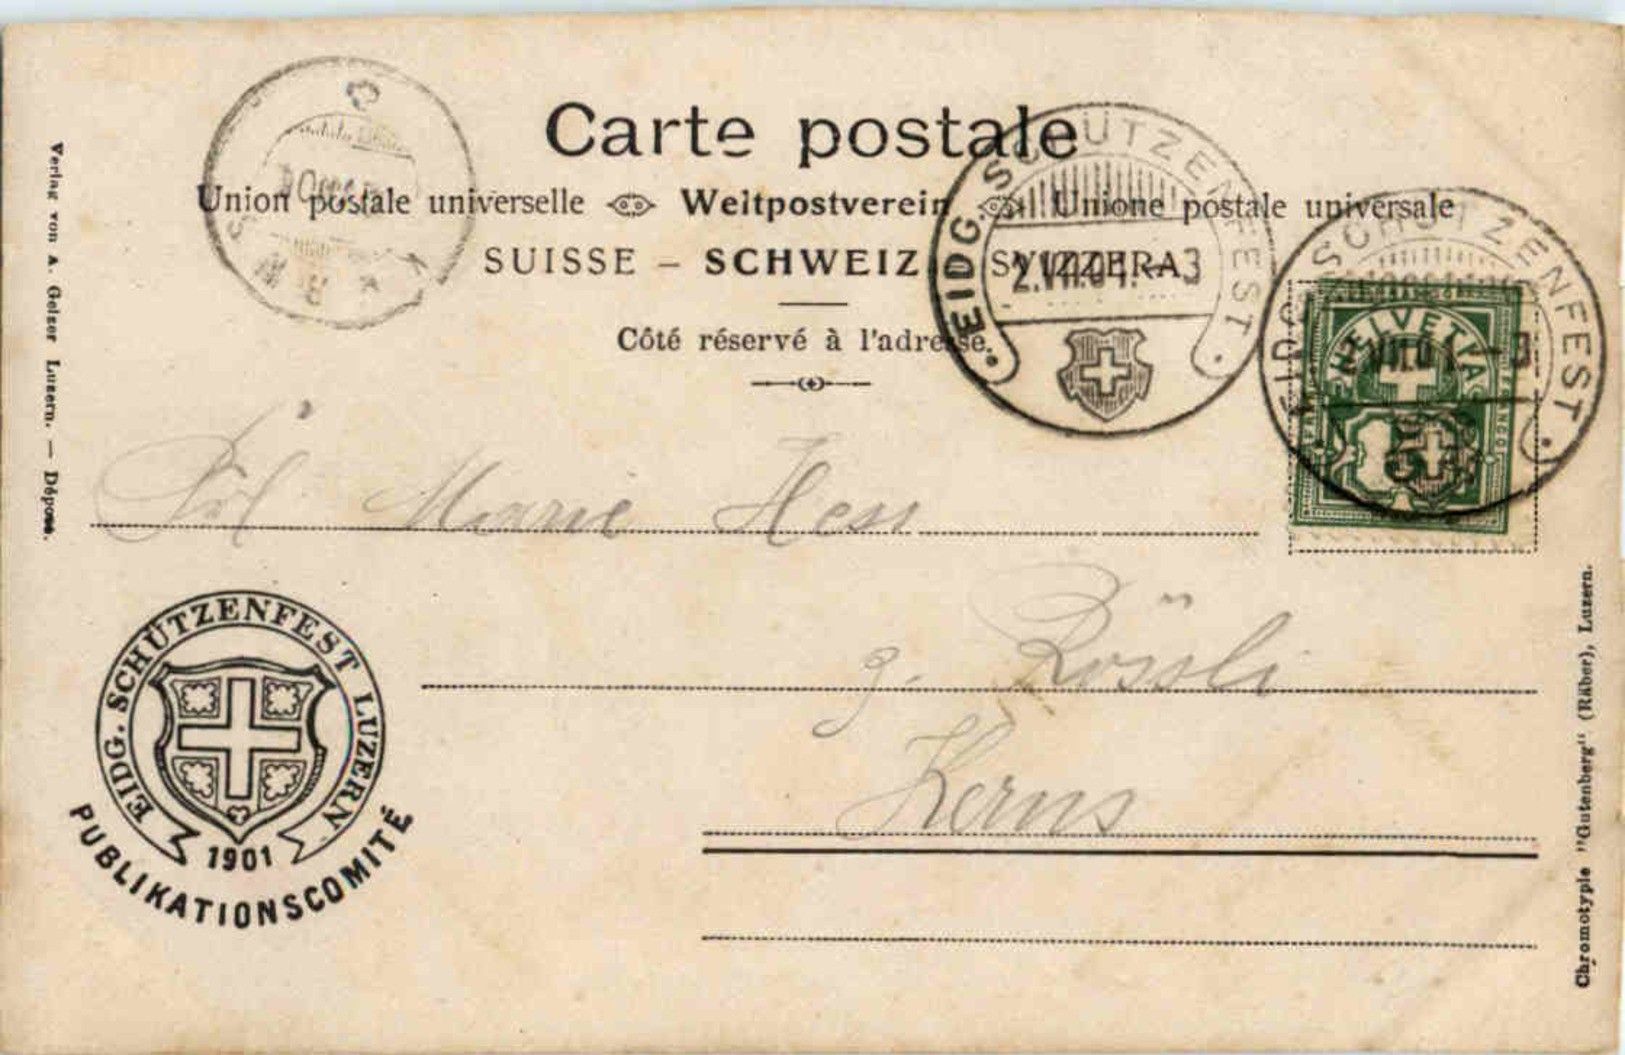 Carte postale
Union postale universelle Weltpostverein Unione postale universale
SUISSE – SCHWEIZ – SVIZZERA
Côté réservé à l'adresse.
EIDG. SCHÜTZENFEST
2.VII.01. - 3
EIDG. SCHÜTZENFEST
VII.01. - 3
HELVETIA
FRANCO
5
Marie Hess
z. Rössli
Kerns
EIDG. SCHÜTZENFEST LUZERN
1901
PUBLIKATIONSCOMITÉ
Verlag von A. Geiser Luzern. — Déposé.
Chromotypie "Gutenberg" (Räber), Luzern.